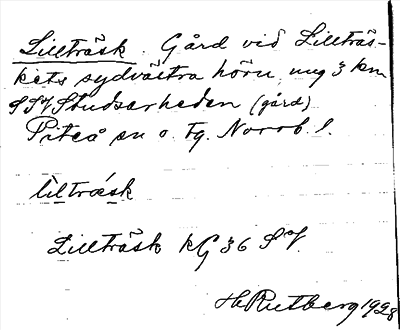 Lillträsk. Gård vid Lillträs-
kets sydvästra hörn, ung 3 km
SSV Studsarheden (gård)
Piteå sn o. tg. Norrb. l.
liltræsk
Lillträsk kG 36 SV.
H. Rutberg 1928